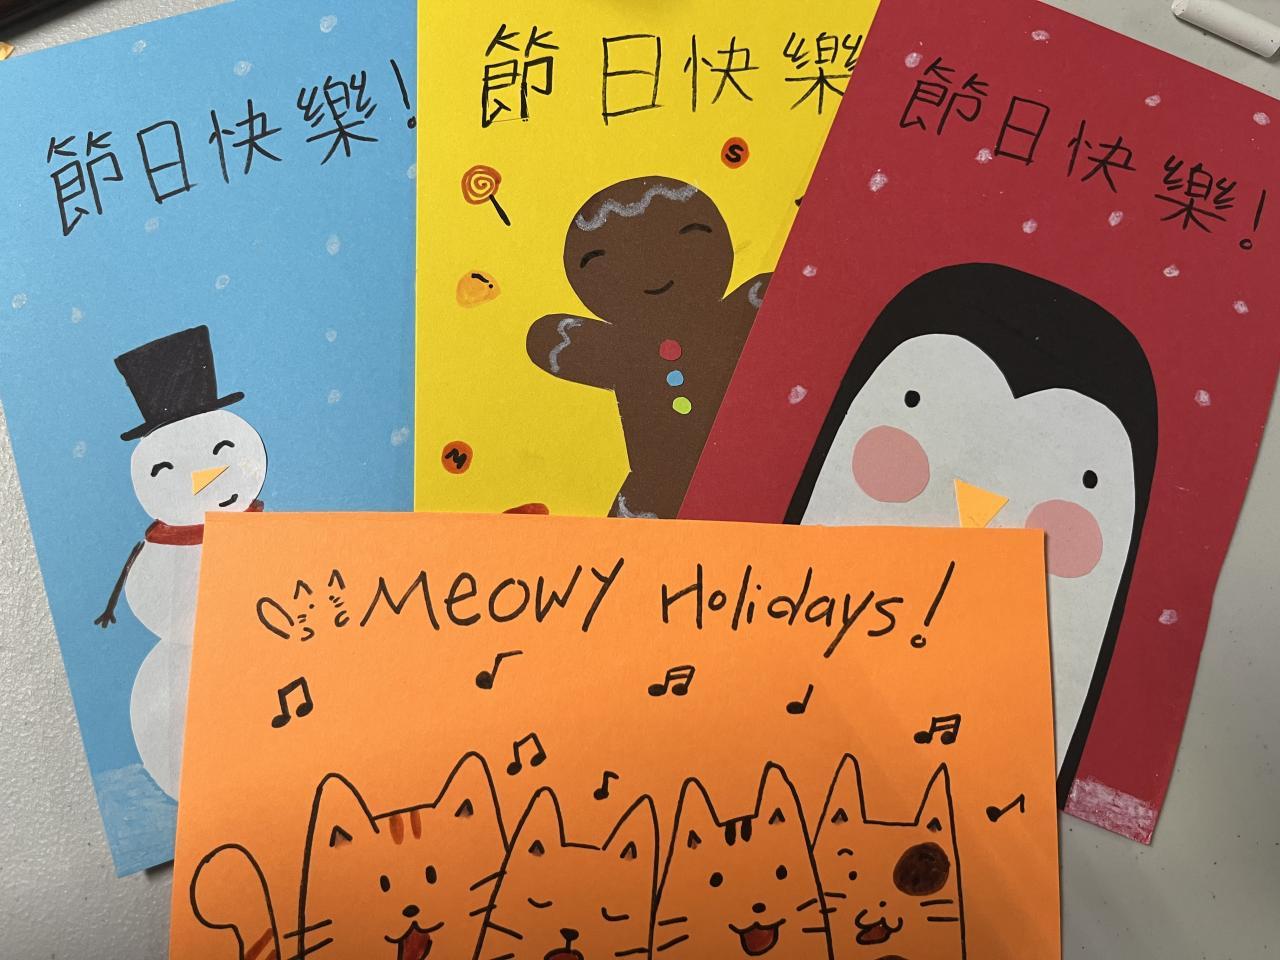 節日快樂!
節日快樂
S
M
節日快樂!
Meowy Holidays!